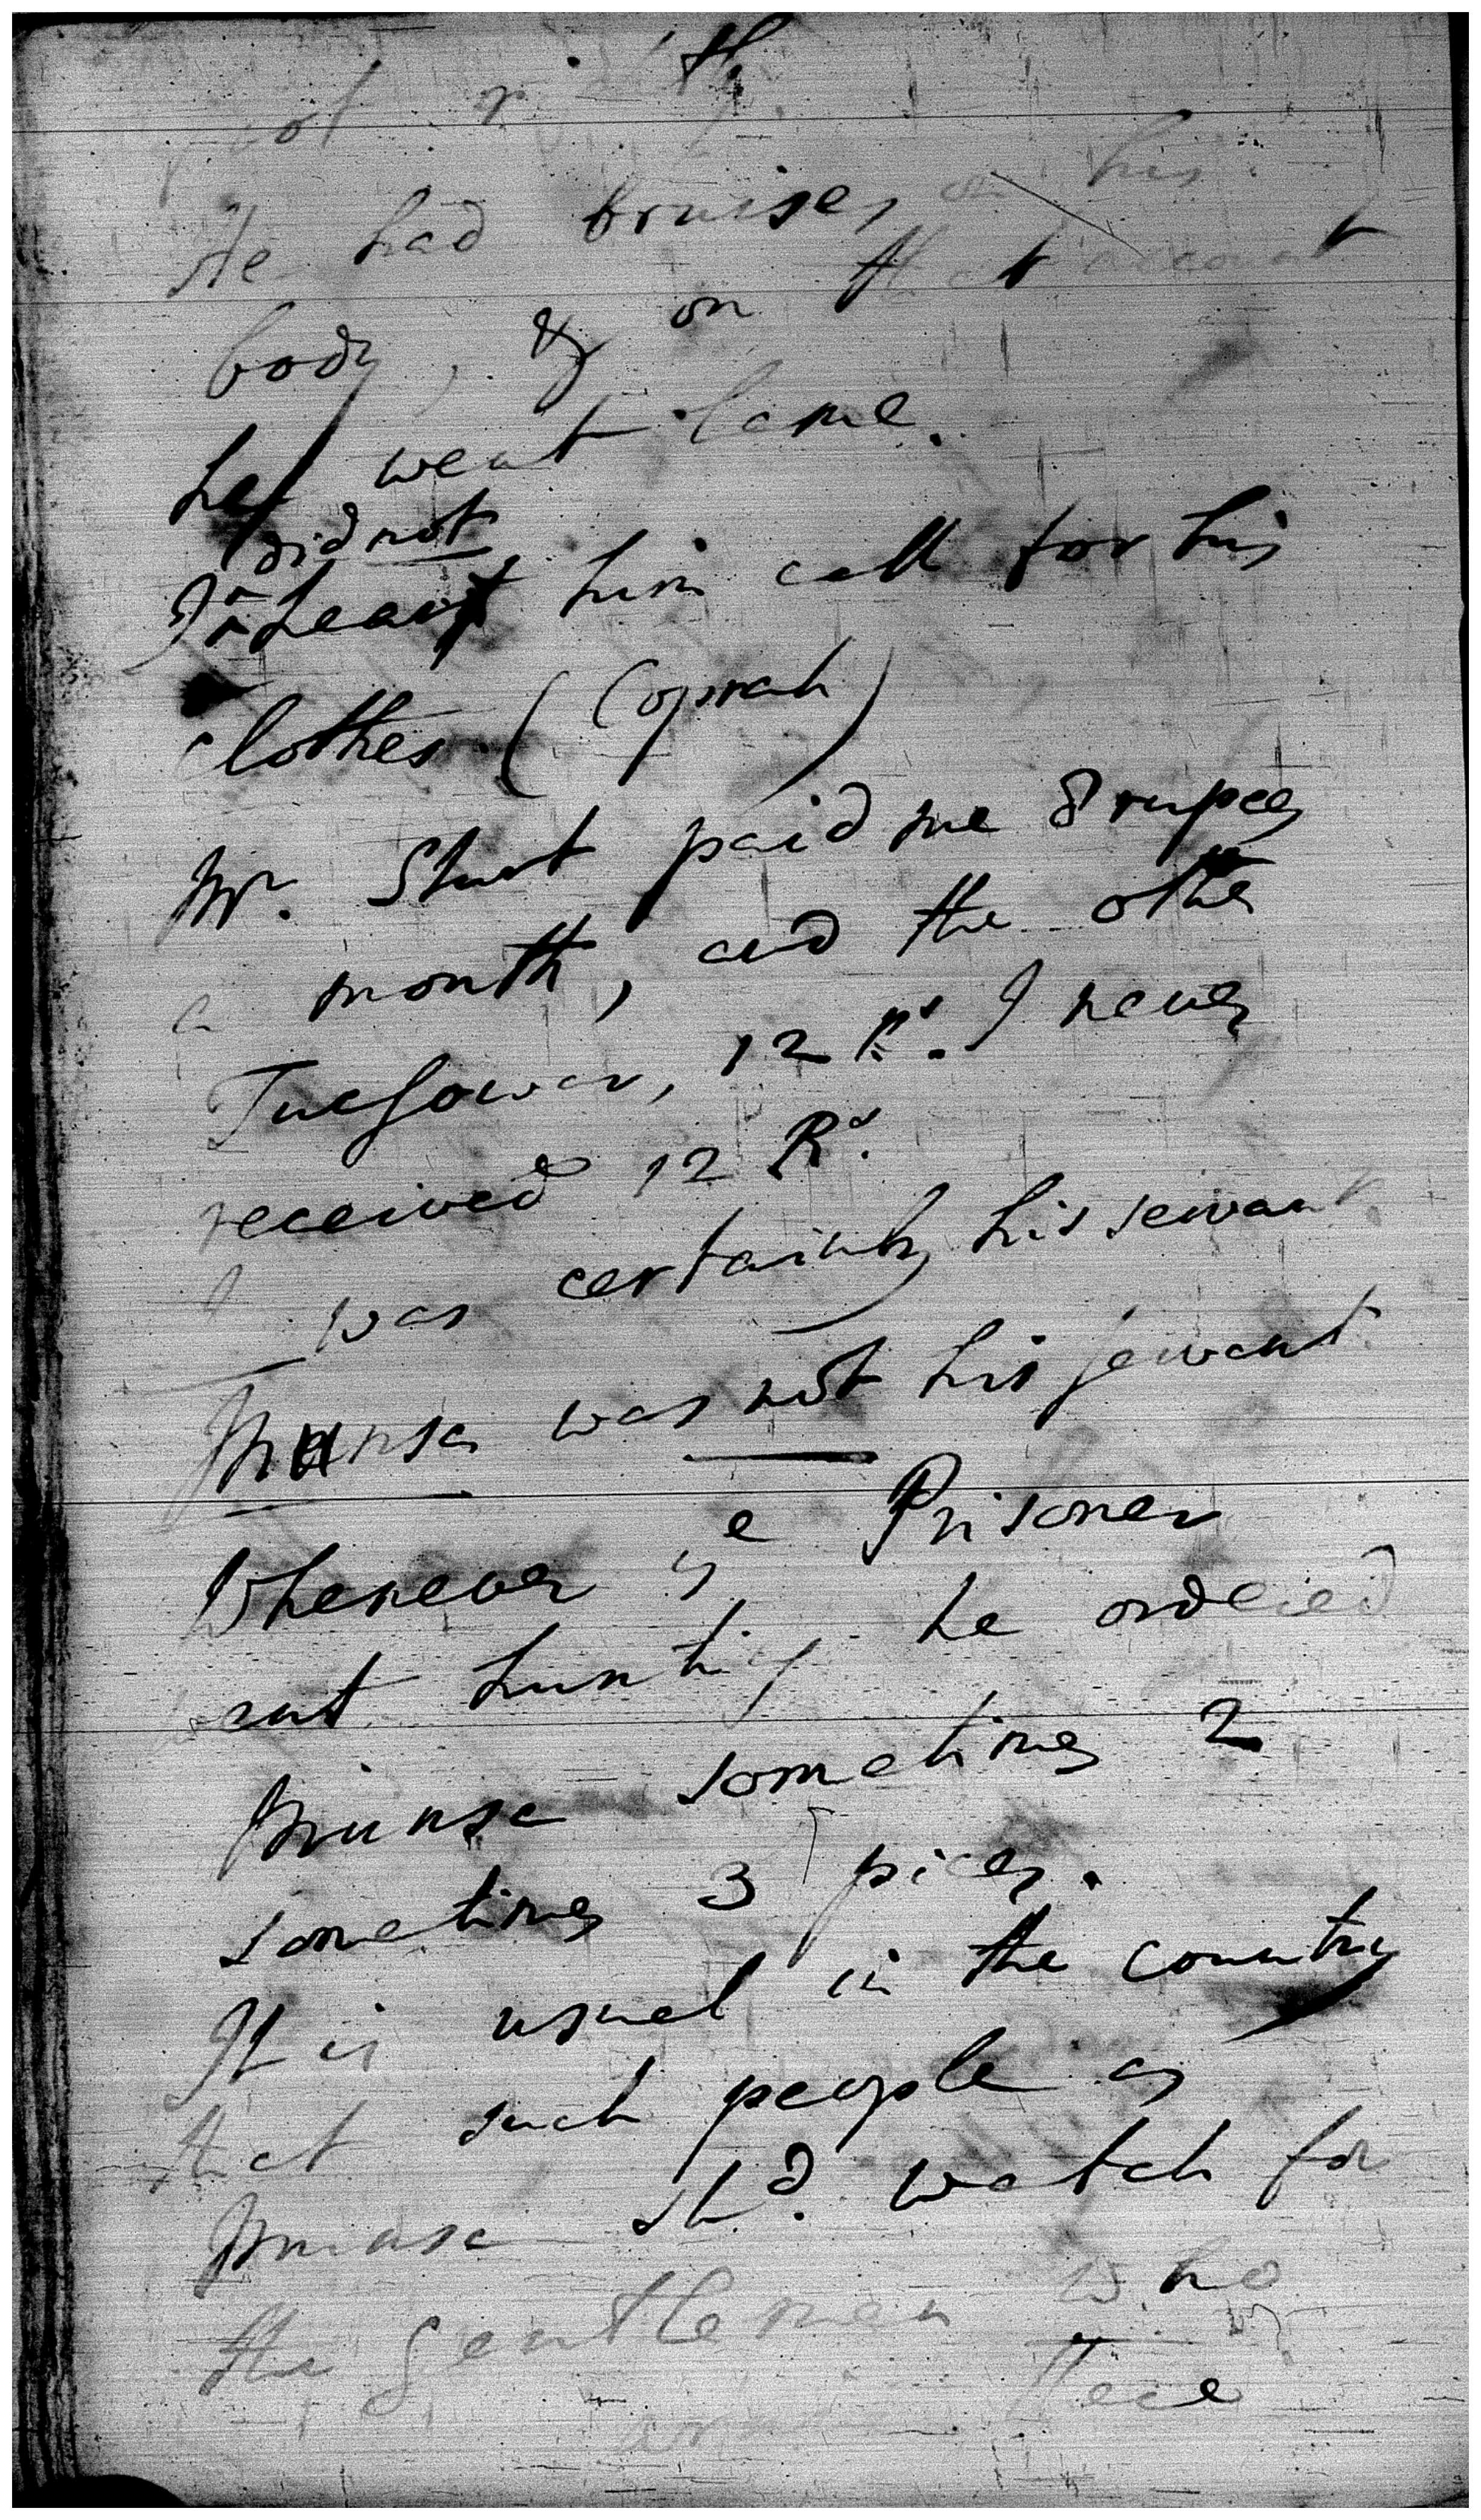 He had bruises on his
body, & on that account
he went lame.
did not
I hear him call for his
clothes (Coprah)
Mr. Stuart paid me 8 rupees
a month, and the other
12 Rs. I never
received 12 Rs.
I was certainly his servant
Munsa was not his servant
Whenever ye Prisoner
went hunting he ordered
Munsa sometimes 2
sometimes 3 pices.
It is usual in the country
that such people as
Munsa shd. watch for
the gentlemen who
are